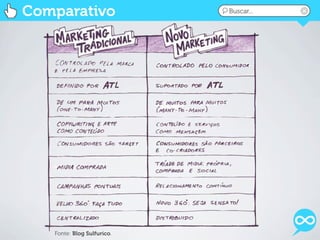 Comparativo
Buscar...
MARKETING TRADICIONAL
NOVO MARKETING
CONTROLADO PELA MARCA E PELA EMPRESA
CONTROLADO PELO CONSUMIDOR
DEFINIDO POR ATL
SUPORTADO POR ATL
DE UM PARA MUITOS (ONE-TO-MANY)
DE MUITOS PARA MUITOS (MANY-TO-MANY)
COPYWRITING E ARTE COMO CONTEÚDO
CONTEÚDO E SERVIÇOS COMO MENSAGEM
CONSUMIDORES SÃO TARGET
CONSUMIDORES SÃO PARCEIROS E CO-CRIADORES
MÍDIA COMPRADA
TRÍADE DE MÍDIA PRÓPRIA, COMPRADA E SOCIAL
CAMPANHAS PONTUAIS
RELACIONAMENTO CONTÍNUO
VELHO 360° FAÇA TUDO
NOVO 360° SEJA SENSATO!
CENTRALIZADO
DISTRIBUÍDO
Fonte: Blog Sulfurico.